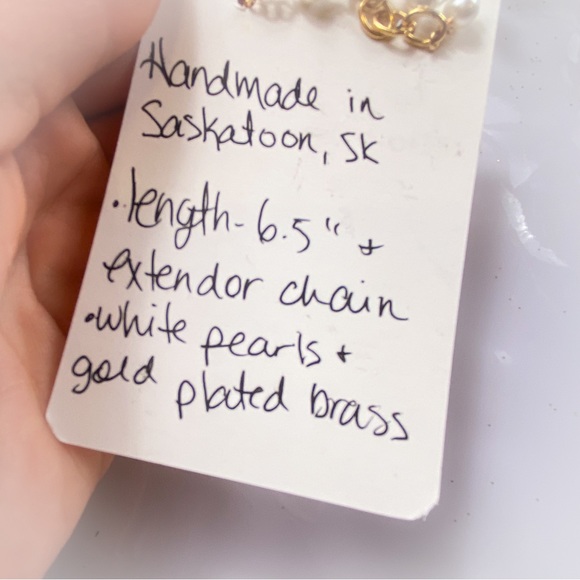 Handmade in
Saskatoon, SK
• length - 6.5" +
extendor chain
• white pearls +
gold plated brass